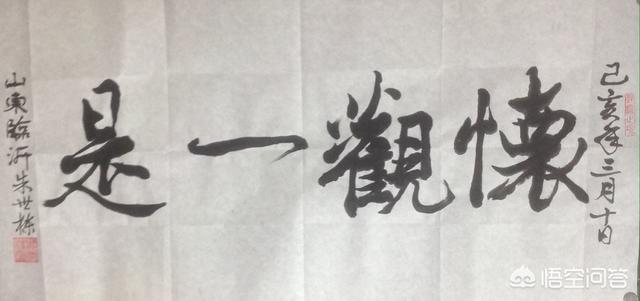 己亥年三月十日
懷觀一是
山東臨沂朱世棟
悟空问答